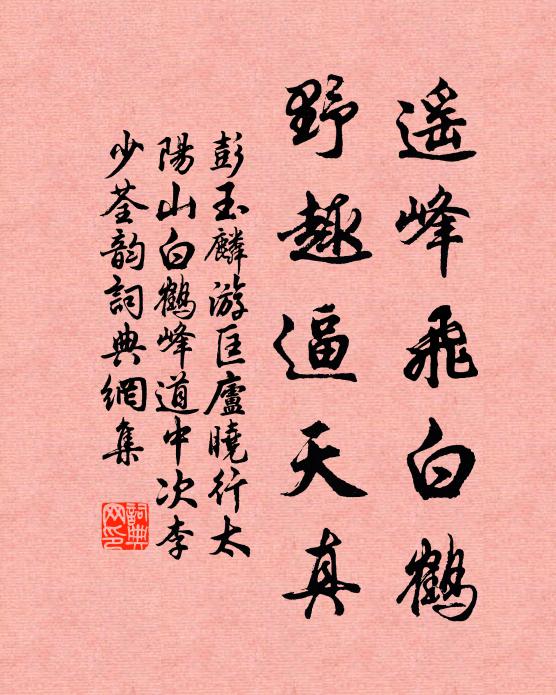 遥峰飛白鶴
野趣逼天真
彭玉麟游匡廬曉行太
陽山白鶴峰道中次李
少荃韵詞典網集
詞典網印